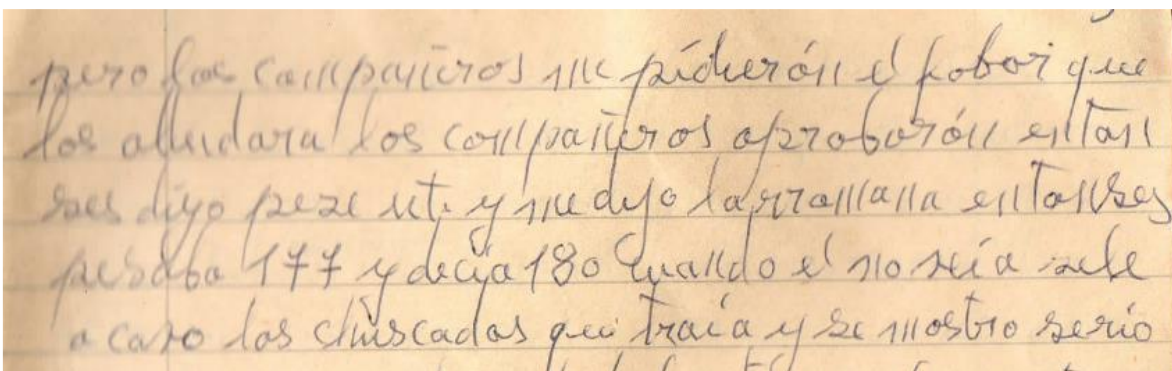 pero los compañeros me pidierón el fobor que
los alludara los compañeros aproborón entan
ses dijo peze ut. y me dijo la rromana entanses
pesaba 177 y decija 180 quando el no seia
a caso los chuscadas que traia y se mostro serio